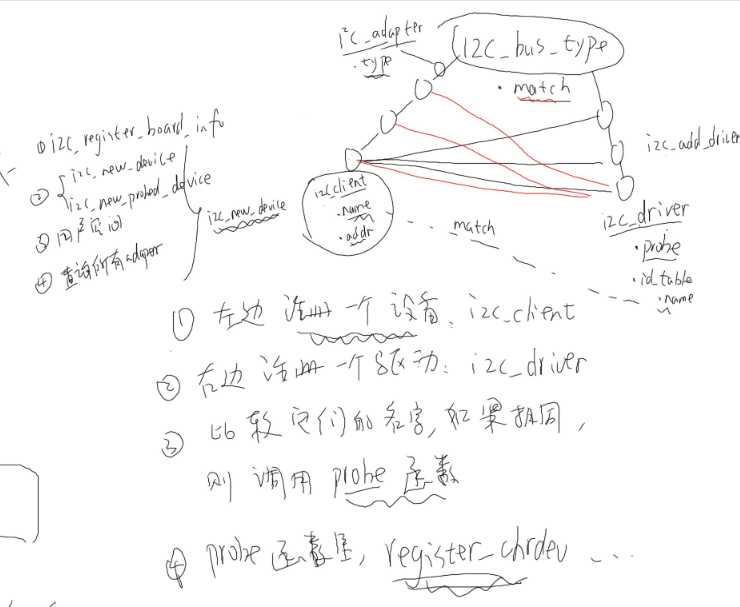 i2c_adapter
.type
i2c_bus_type
.match
① i2c_register_board_info
② i2c_new_device
i2c_new_probed_device
③ 用户空间
④ 查询所有adapter
i2c_new_device
i2c_client
.name
.addr
match
i2c_add_driver
i2c_driver
.probe
.id_table
.name
① 左边注册一个设备: i2c_client
② 右边注册一个驱动: i2c_driver
③ 比较它们的名字,如果相同,
则调用 probe 函数
④ probe 函数里, register_chrdev ...